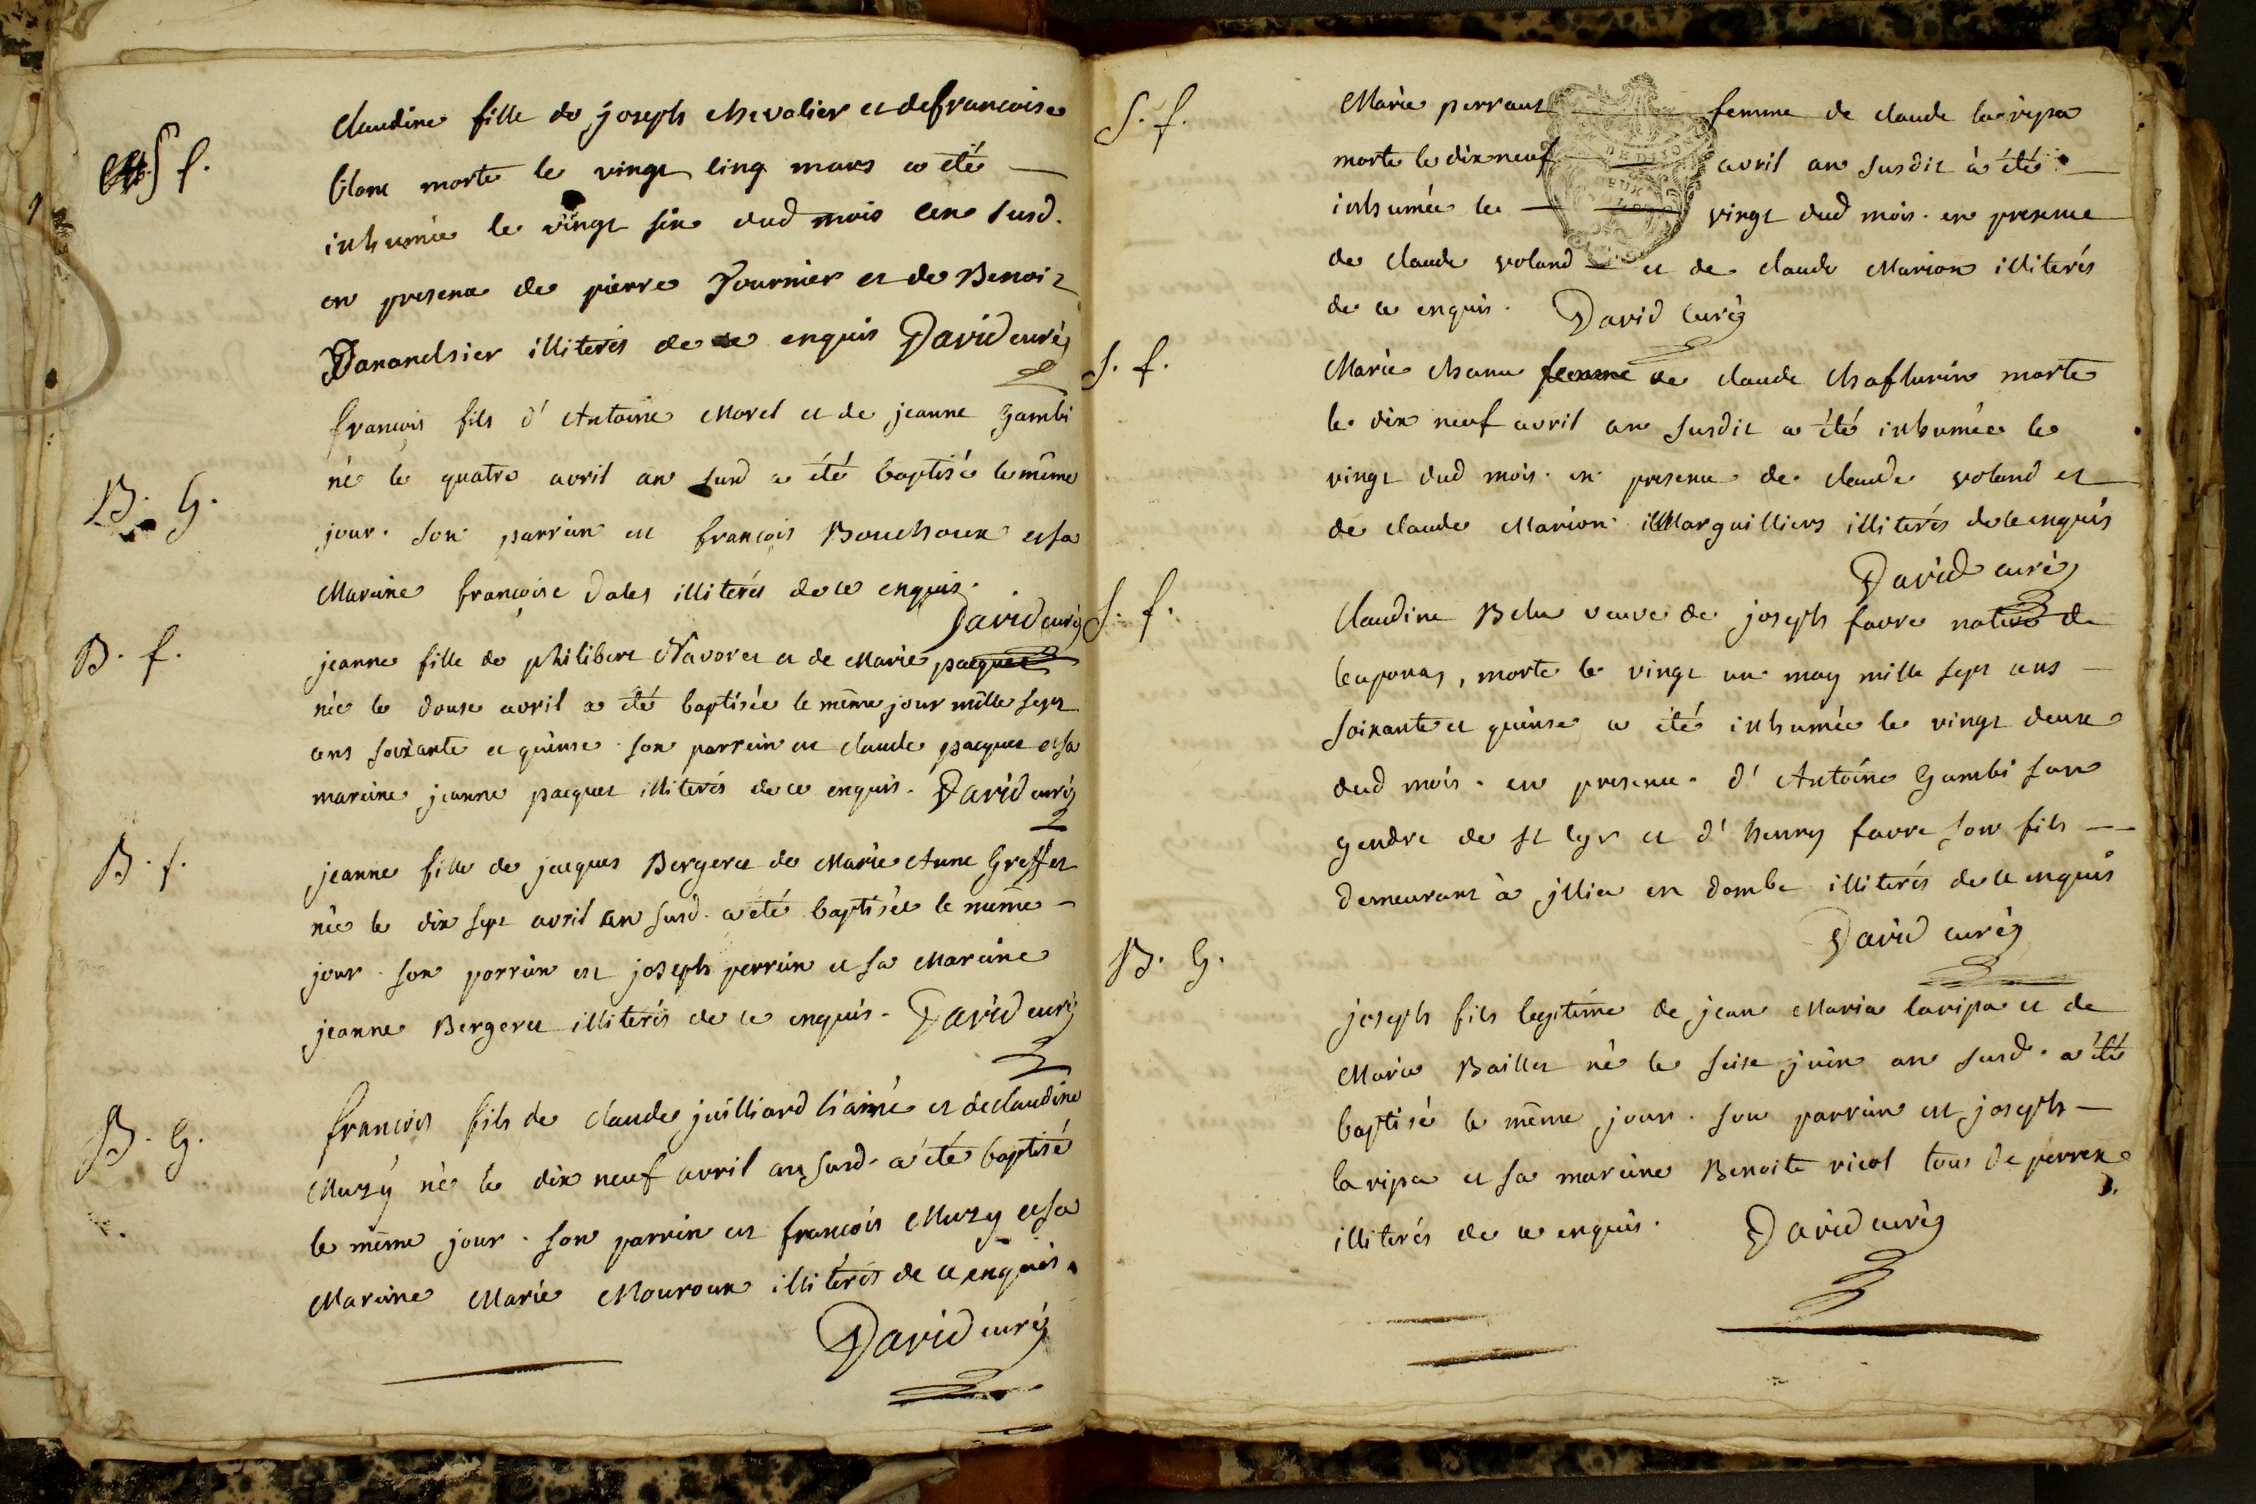 S f.
Claudine fille de joseph chevalier et de francoise
blanc morte le vingt cinq mars a été
inhumée le vingt six dud mois an susd.
en presence de pierre Fournier et de Benoit
illiterés de ce enquis David curé
B. G.
francois fils d'Antoine Morel et de jeanne Gambi
né le quatre avril an susd a été baptisé le même
jour. son parrain est francois Bouchoux et sa
Mareine francoise dales illiterés de ce enquis.
David curé
B. f.
jeanne fille de philibert Navoret et de Marie pacquet
née le douse avril a été baptisée le même jour mille sept
cens soixante et quinse. son parrein est claude pacquet et sa
mareine jeanne pacquet illiterés de ce enquis. David curé
B. f.
jeanne fille de jacques Bergere de Marie Anne Greffet
née le dix sept avril an susd. a été baptisée le même
jour. son parrain est joseph perrin et sa Mareine
jeanne Bergere illiterés de ce enquis. David curé
B. G.
francois fils de claude juilliard l'ainé et de claudine
Muzy né le dix neuf avril an susd. a été baptisé
le même jour. son parrein est francois Muzy et sa
Mareine Marie Mouroux illiterés de ce enquis.
David curé
S. f.
Marie perraut femme de claude laripa
morte le dix neuf avril an susdit à été
inhumée le vingt dud mois. en presence
de claude voland et de claude Marion illiterés
de ce enquis. David curé
S. f.
Marie chanu femme de claude Chaflurin morte
le dix neuf avril an susdit a été inhumée le
vingt dud mois. en presence de claude voland et
de claude Marion Marguilliers illiterés de ce enquis
David curé
S. f.
Claudine Belu veuve de joseph favre native de
leaponay, morte le vingt un may mille sept cens
soixante et quinse a été inhumée le vingt deux
dud mois. en presence. d'Antoine Gambi son
gendre de st Cyr et d'henry favre son fils
demeurant à jllia en dombe illiterés de ce enquis
David curé
B. G.
joseph fils legitime de jean Maria laripa et de
Maria Baillet né le seise juin an susd. a été
baptisé le même jour. son parrain est joseph
laripa et sa mareine Benoite vicol tous de perrex
illiterés de ce enquis. David curé